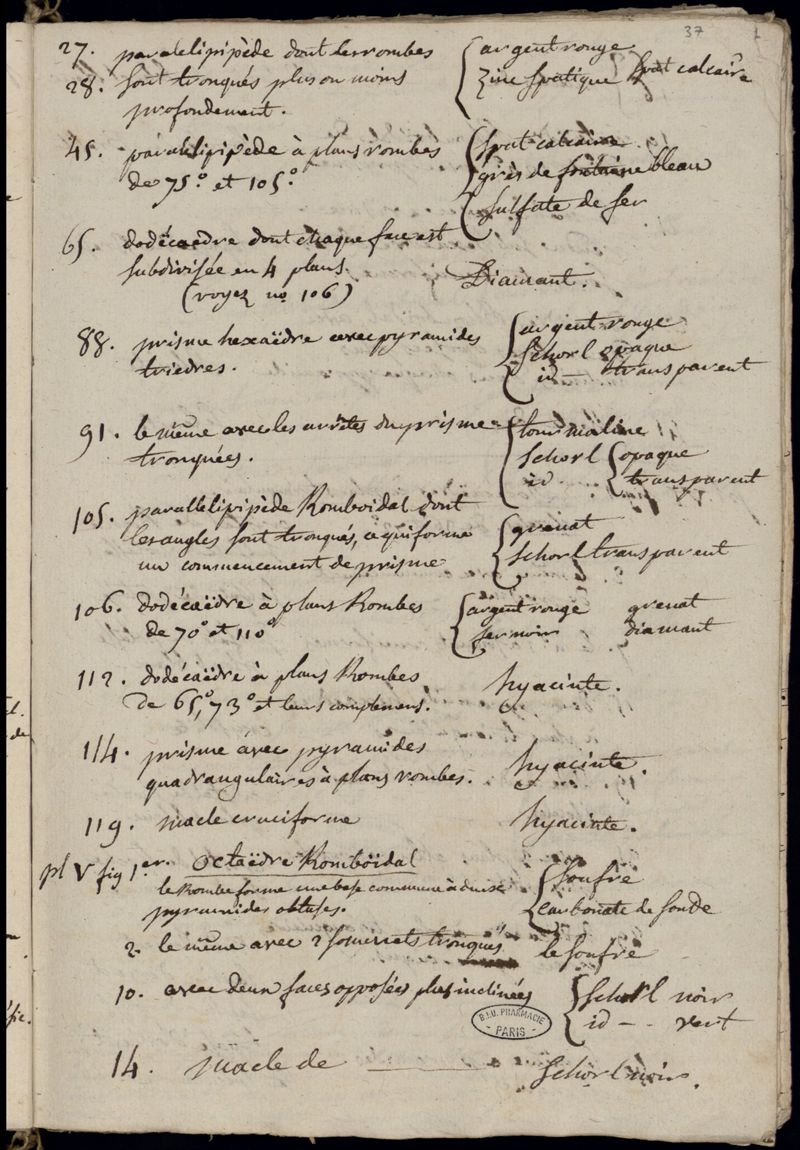 37
27. paralelipipède dont les rombes { argent rouge
28. sont tronqués plus ou moins { zinc spatique spat calcaire
profondement.
45. paralelipipède à plans rombes { spat calcaire
de 75.° et 105.° { grès de fontainebleau
{ sulfate de fer
65. dodécaedre dont chaque face est
subdivisée en 4 plans. Diamant.
(voyez no. 106)
88. prisme hexaëdre avec pyramides { argent rouge
triedres. { schorl opaque
{ id — transparent
91. le même avec les arrêtes du prisme { tourmaline
tronquées. { schorl { opaque
id. { transparent
105. parallelipipède Romboidal dont
les angles sont tronqués, ce qui forme { grenat
un commencement de prisme { schorl transparent
106. dodécaëdre à plans Rombes { argent rouge grenat
de 70° et 110° { fer noir diamant
112. dodécaëdre à plans Rombes hyacinte.
de 65°, 73° et leurs complemens.
114. prisme avec pyramides
quadrangulaires à plans rombes. hyacinte.
119. macle cruciforme hyacinte.
pl V fig 1er. Octaëdre Romboïdal
le Rombe forme une base commune à deux { soufre
pyramides obtuses. { carbonate de soude
2. le même avec 2 sommets tronqués le soufre
10. avec deux faces opposées plus inclinées { schorl noir
{ id — . vert
B.I.U. PHARMACIE
PARIS
14. macle de ——— schorl noir.